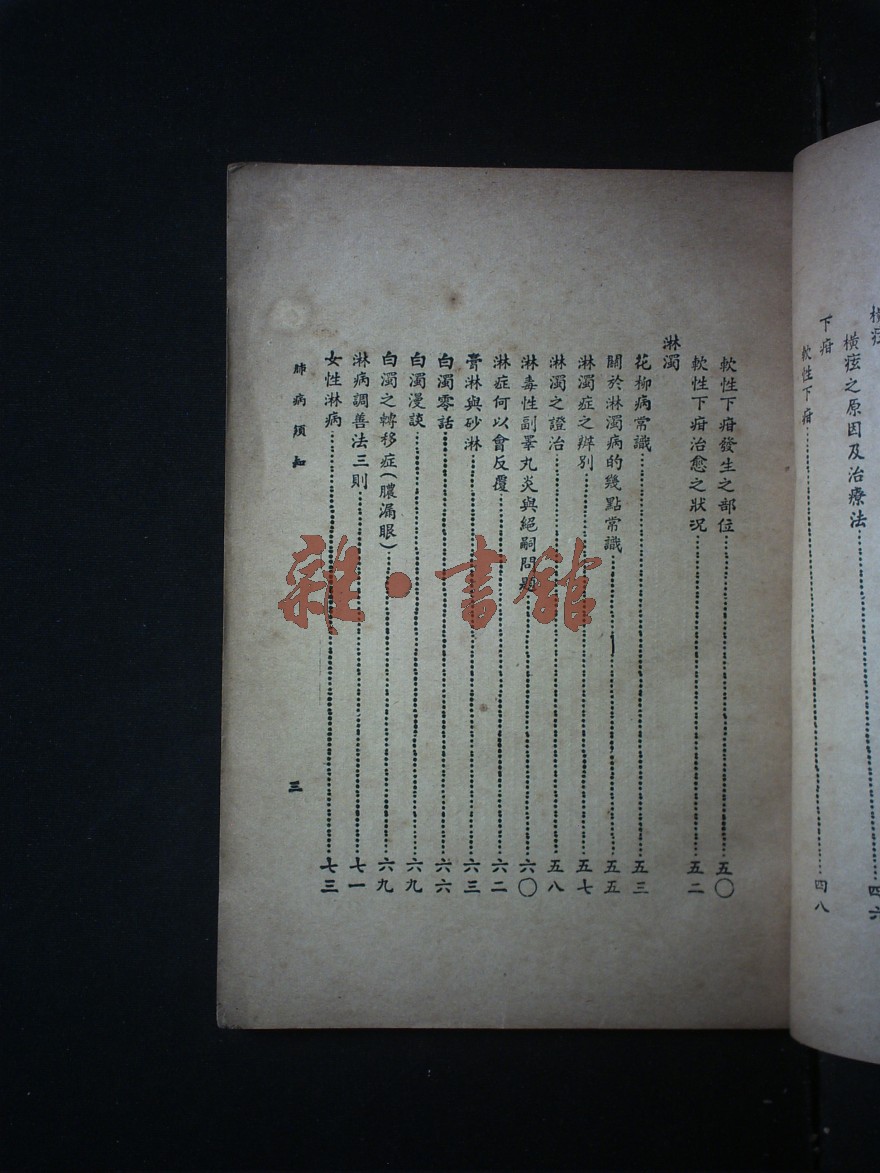 橫痃之原因及治療法……四六
下疳
軟性下疳……四八
軟性下疳發生之部位……五〇
軟性下疳治愈之狀况……五二
淋濁
花柳病常識……五三
關於淋濁病的幾點常識……五五
淋濁症之辨別……五七
淋濁之證治……五八
淋毒性副睾丸炎與絕嗣問題……六〇
淋症何以會反覆……六二
膏淋與砂淋……六三
白濁零話……六六
白濁漫談……六九
白濁之轉移症(膿漏眼)……六九
淋病調善法三則……七一
女性淋病……七三
肺病須知
三
雜·書館